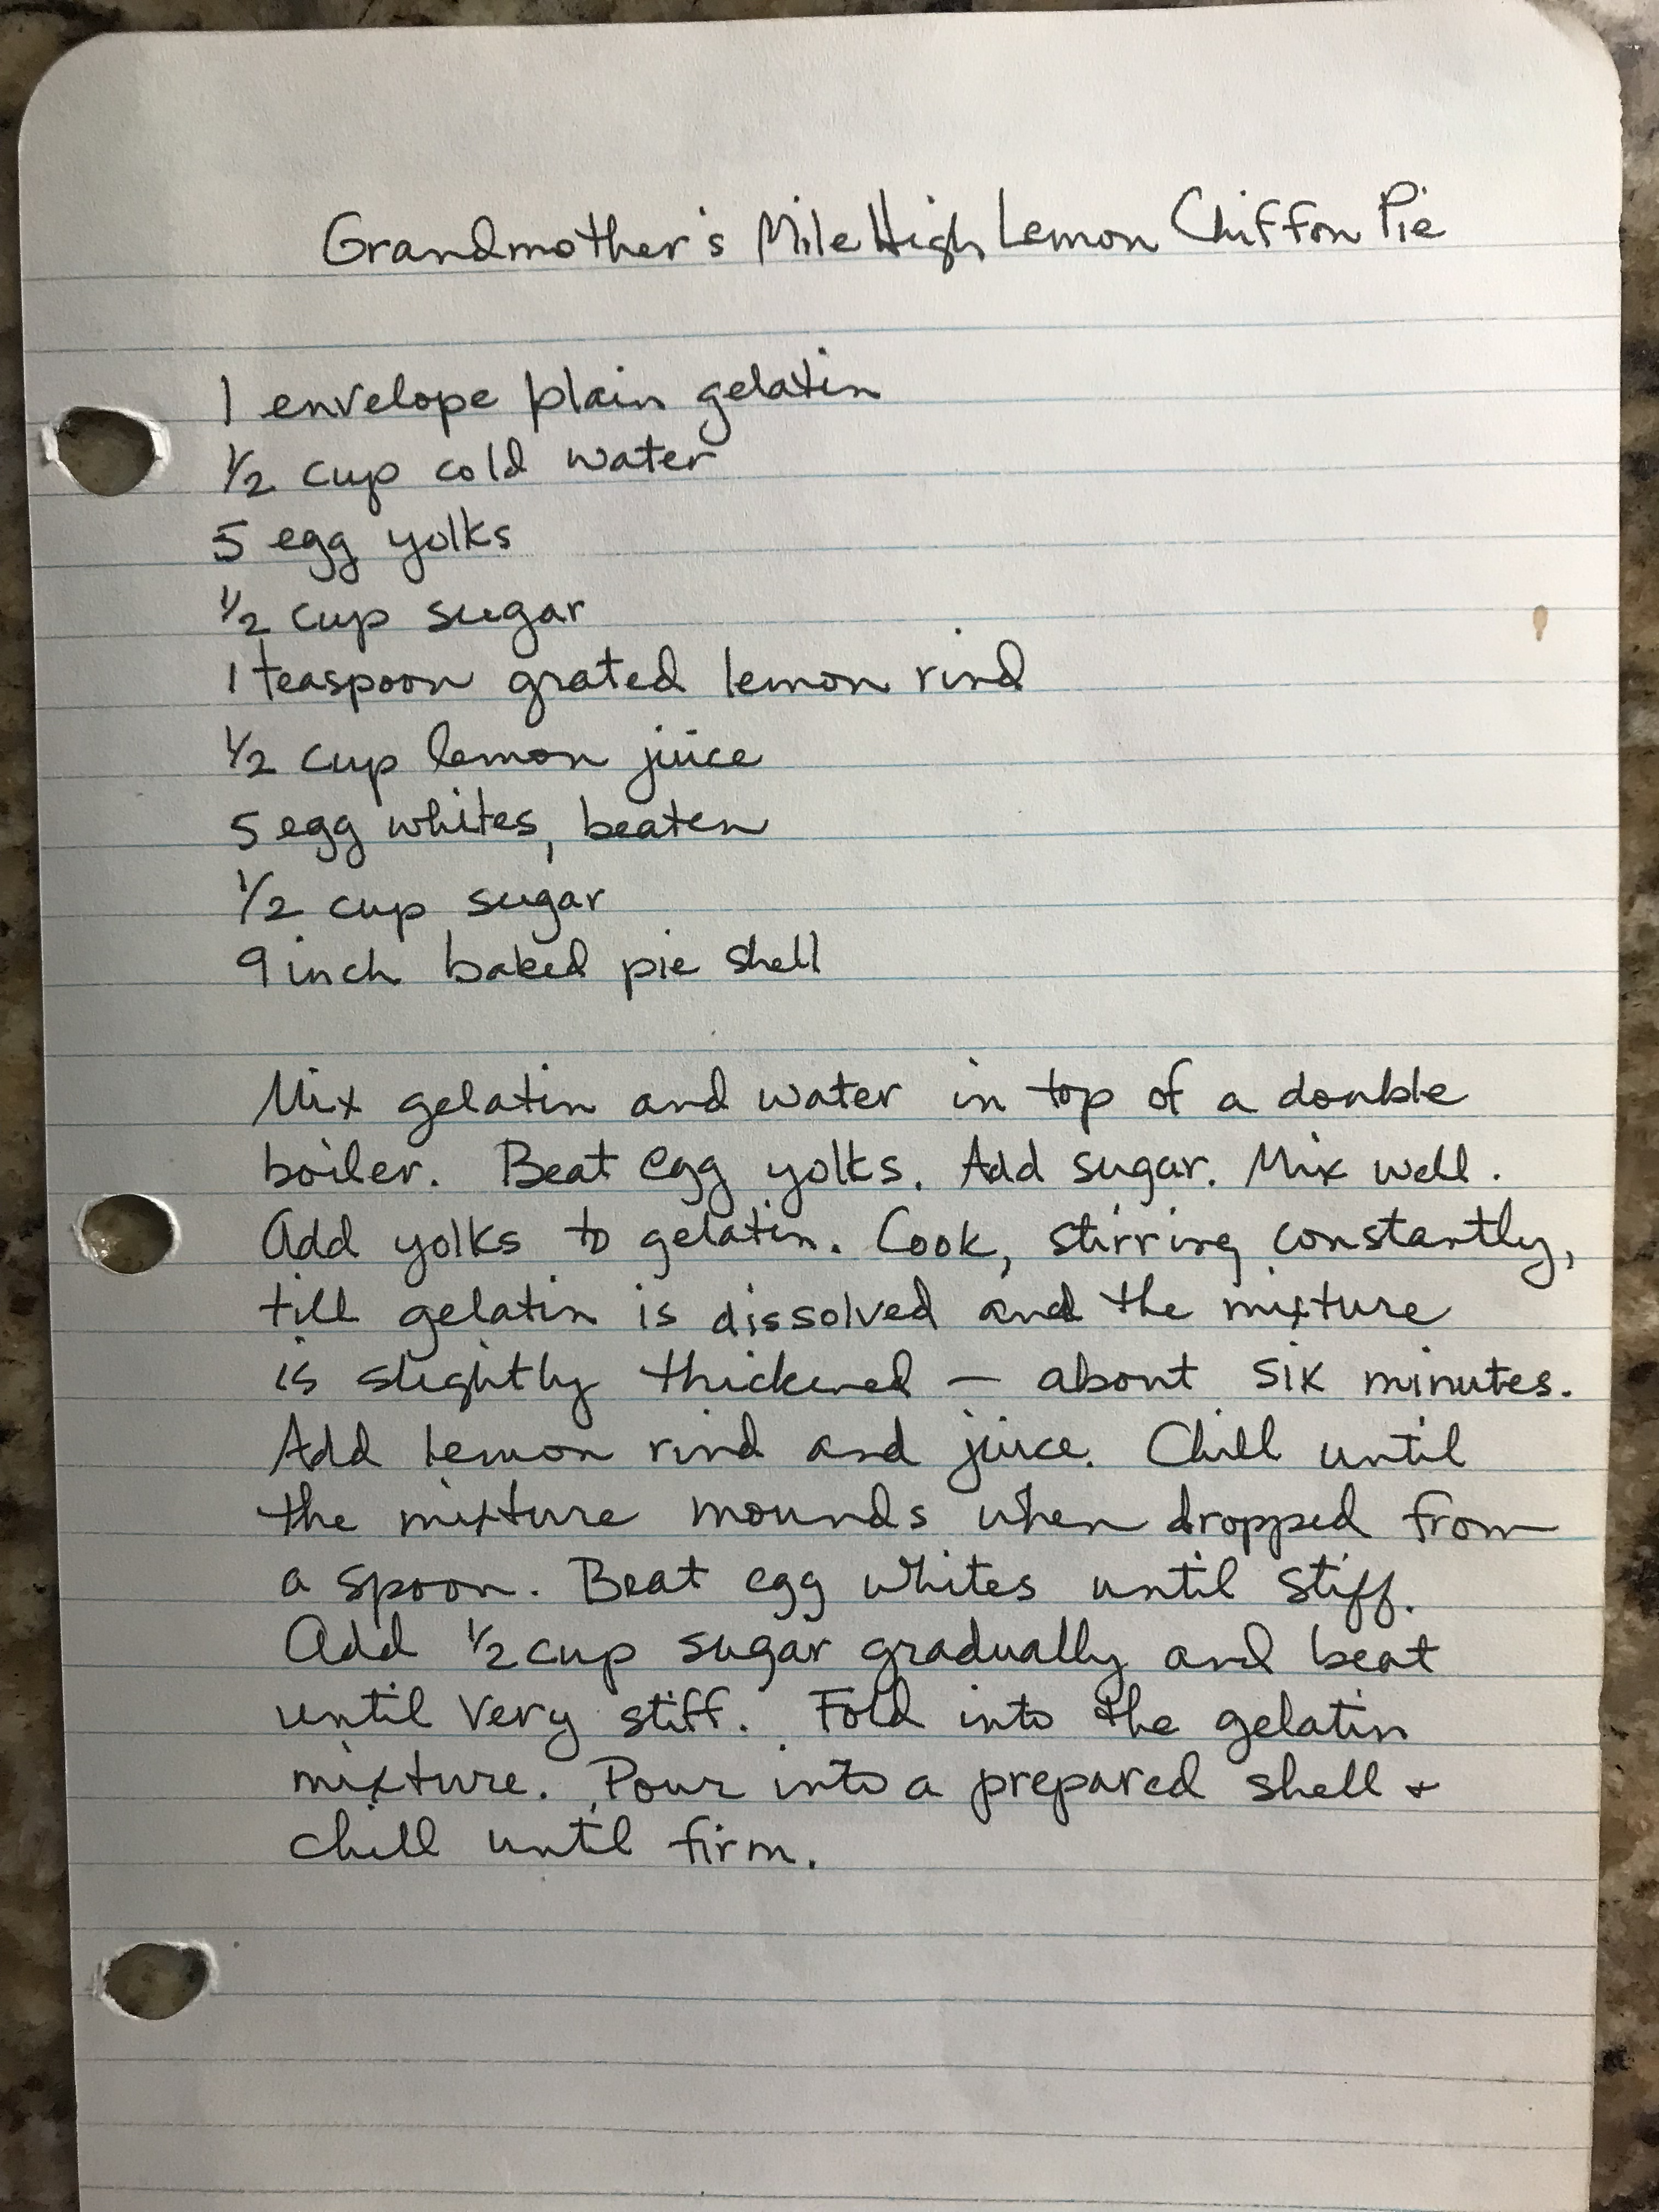 Grandmother's Mile High Lemon Chiffon Pie
1 envelope plain gelatin
1/2 cup cold water
5 egg yolks
1/2 cup sugar
1 teaspoon grated lemon rind
1/2 cup lemon juice
5 egg whites, beaten
1/2 cup sugar
9 inch baked pie shell
Mix gelatin and water in top of a double
boiler. Beat egg yolks. Add sugar. Mix well.
Add yolks to gelatin. Cook, stirring constantly,
till gelatin is dissolved and the mixture
is slightly thickened — about six minutes.
Add lemon rind and juice. Chill until
the mixture mounds when dropped from
a spoon. Beat egg whites until stiff.
Add 1/2 cup sugar gradually and beat
until very stiff. Fold into the gelatin
mixture. Pour into a prepared shell +
chill until firm.